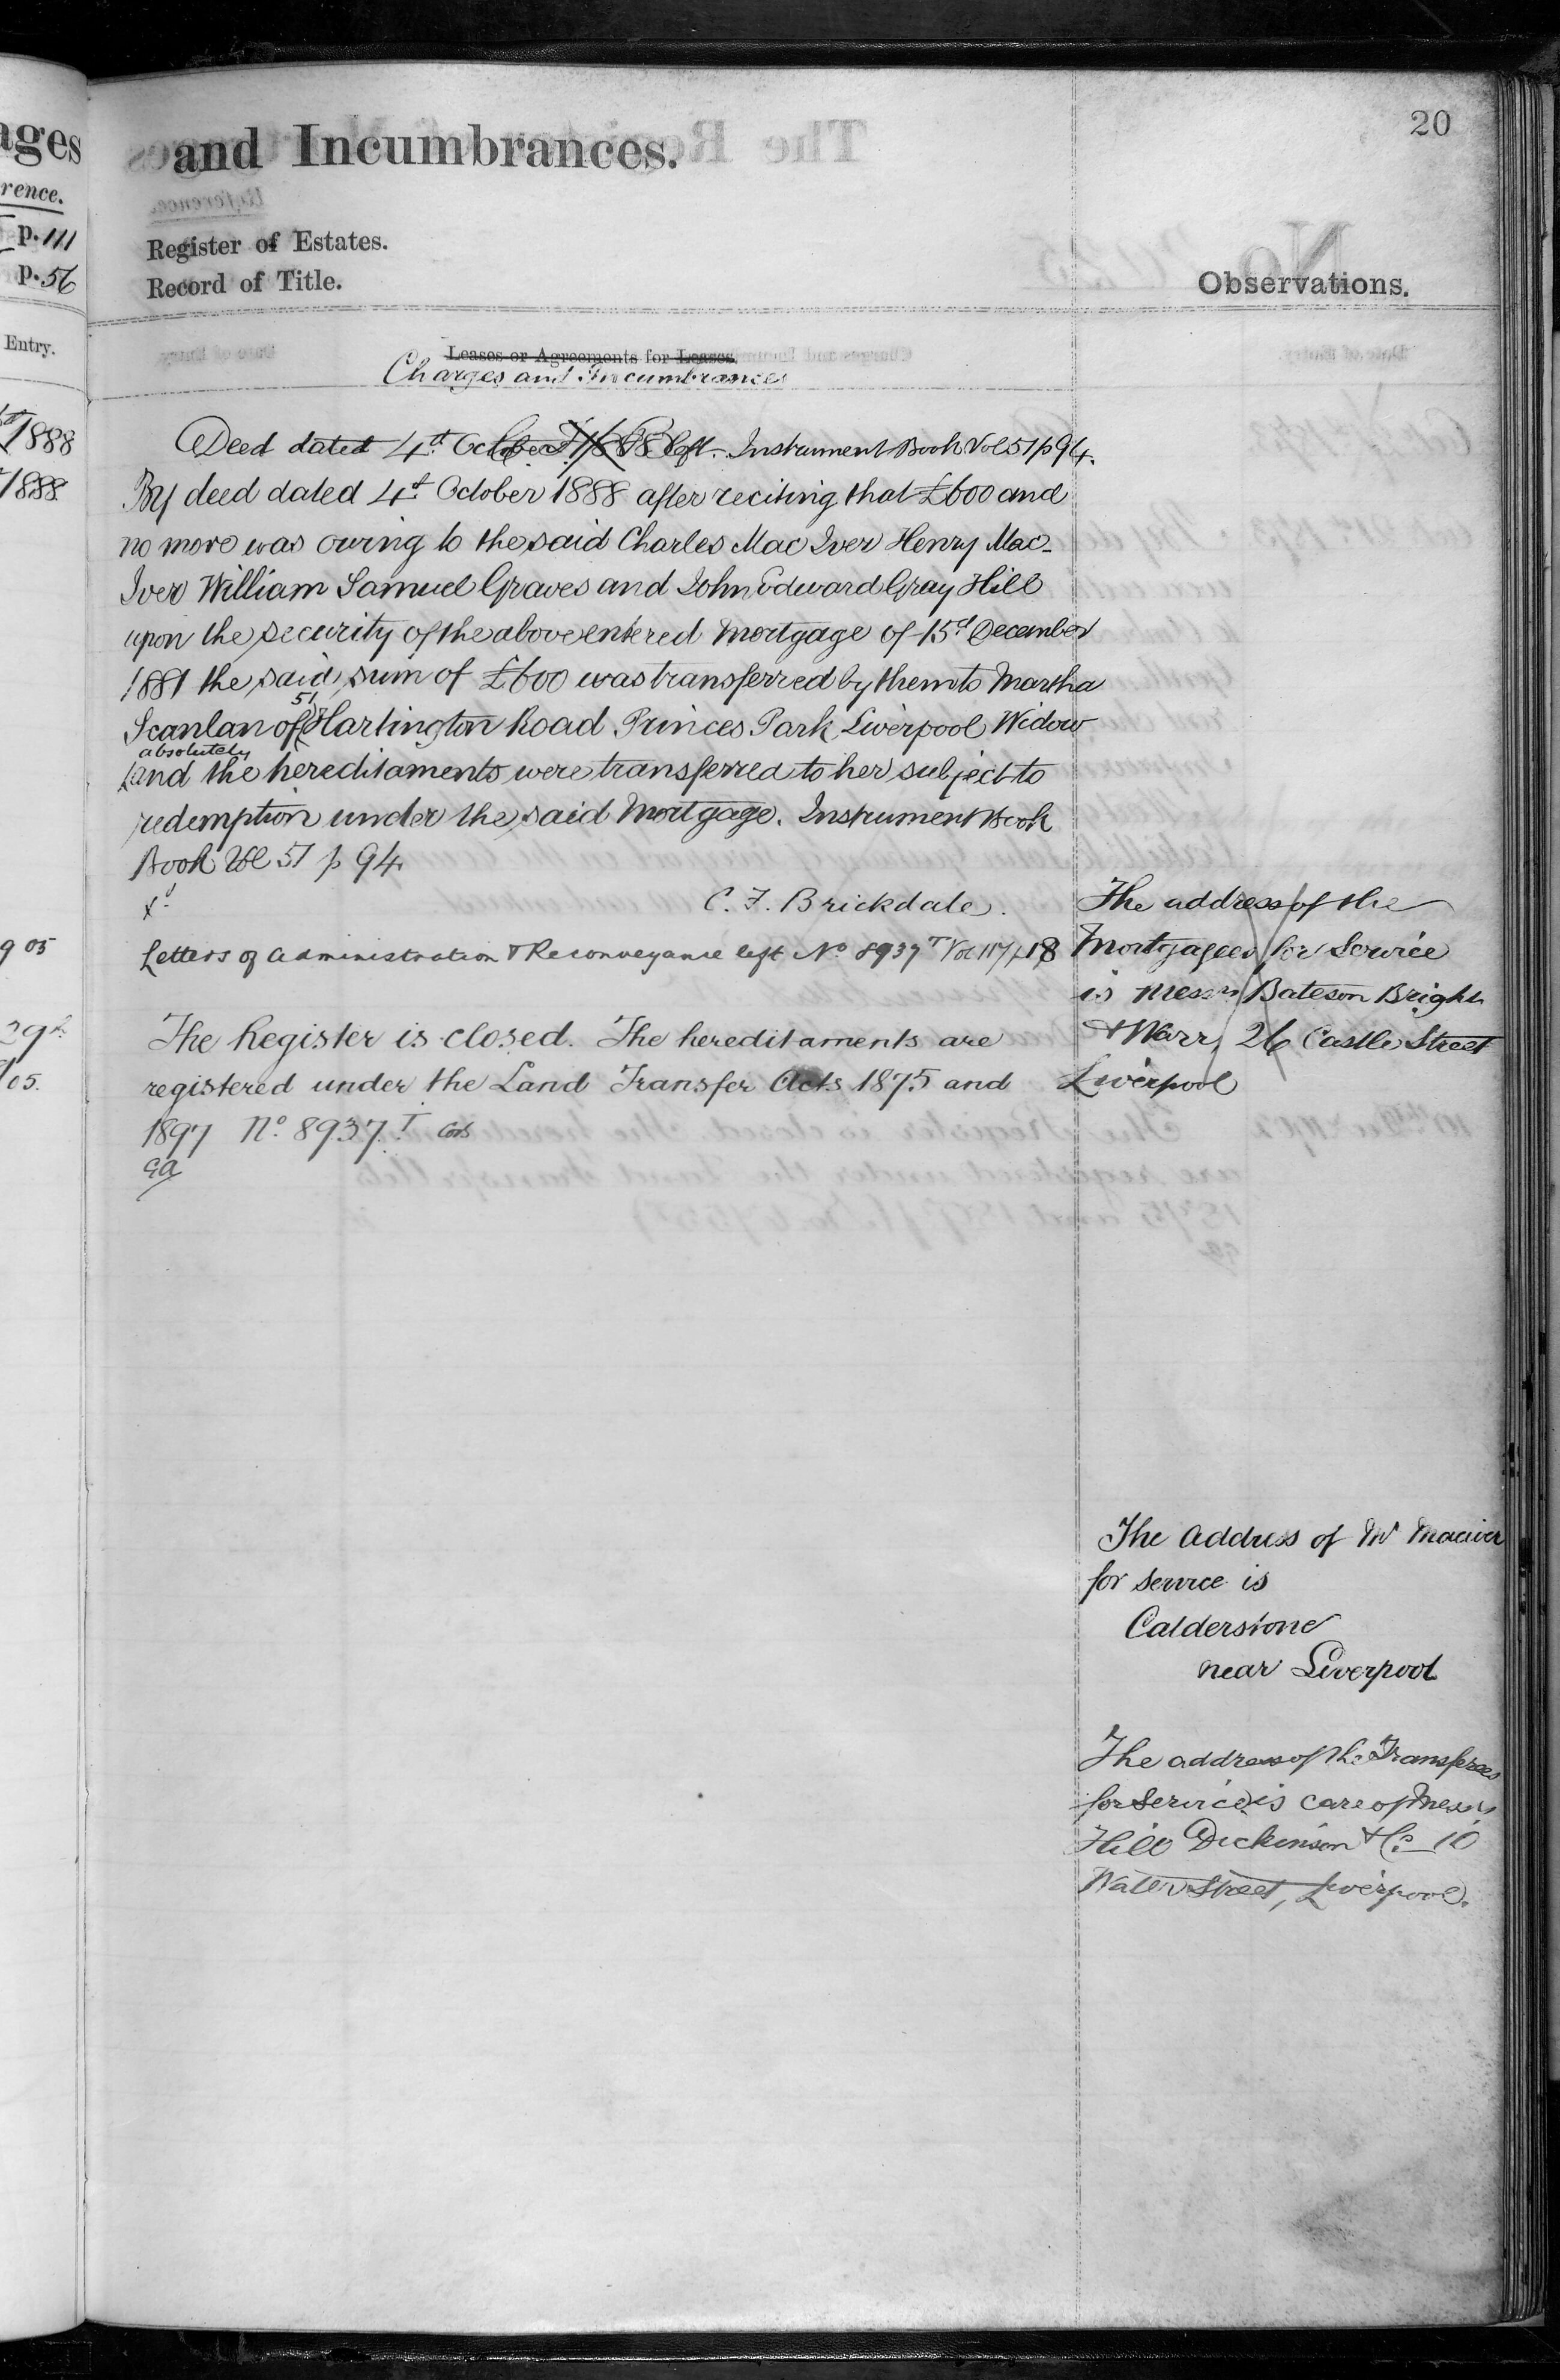 ages
rence.
p. 111
p. 56
Entry.
1888
1888
9 05
29th
05.
and Incumbrances.
20
Register of Estates.
Record of Title.
Observations.
Leases or Agreements for Leases.
Charges and Incumbrances
Deed dated 4th October 1888 left. Instrument Book Vol 51 p 94.
By deed dated 4th October 1888 after reciting that £600 and
no more was owing to the said Charles Mac Iver Henry Mac-
Iver William Samuel Graves and John Edward Gray Hill
upon the security of the above entered Mortgage of 15th December
1881 the said sum of £600 was transferred by them to Martha
Scanlan of 51 Hartington Road Princes Park Liverpool Widow
absolutely
and the hereditaments were transferred to her subject to
redemption under the said Mortgage. Instrument Book
Book Vol 51 p 94.
C. F. Brickdale.
Letters of administration & Reconveyance left No 8937 T Vol 117 p 18
The Register is closed. The hereditaments are
registered under the Land Transfer Acts 1875 and
1897 No. 8937. T
The address of the
Mortgagees for Service
is Messrs Bateson Bright
& Warr, 26 Castle Street
Liverpool
The Address of Mr Maciver
for Service is
Calderstone
near Liverpool
The address of the Transferees
for Service is care of Messrs
Hill Dickinson & Co 10
Water Street, Liverpool.